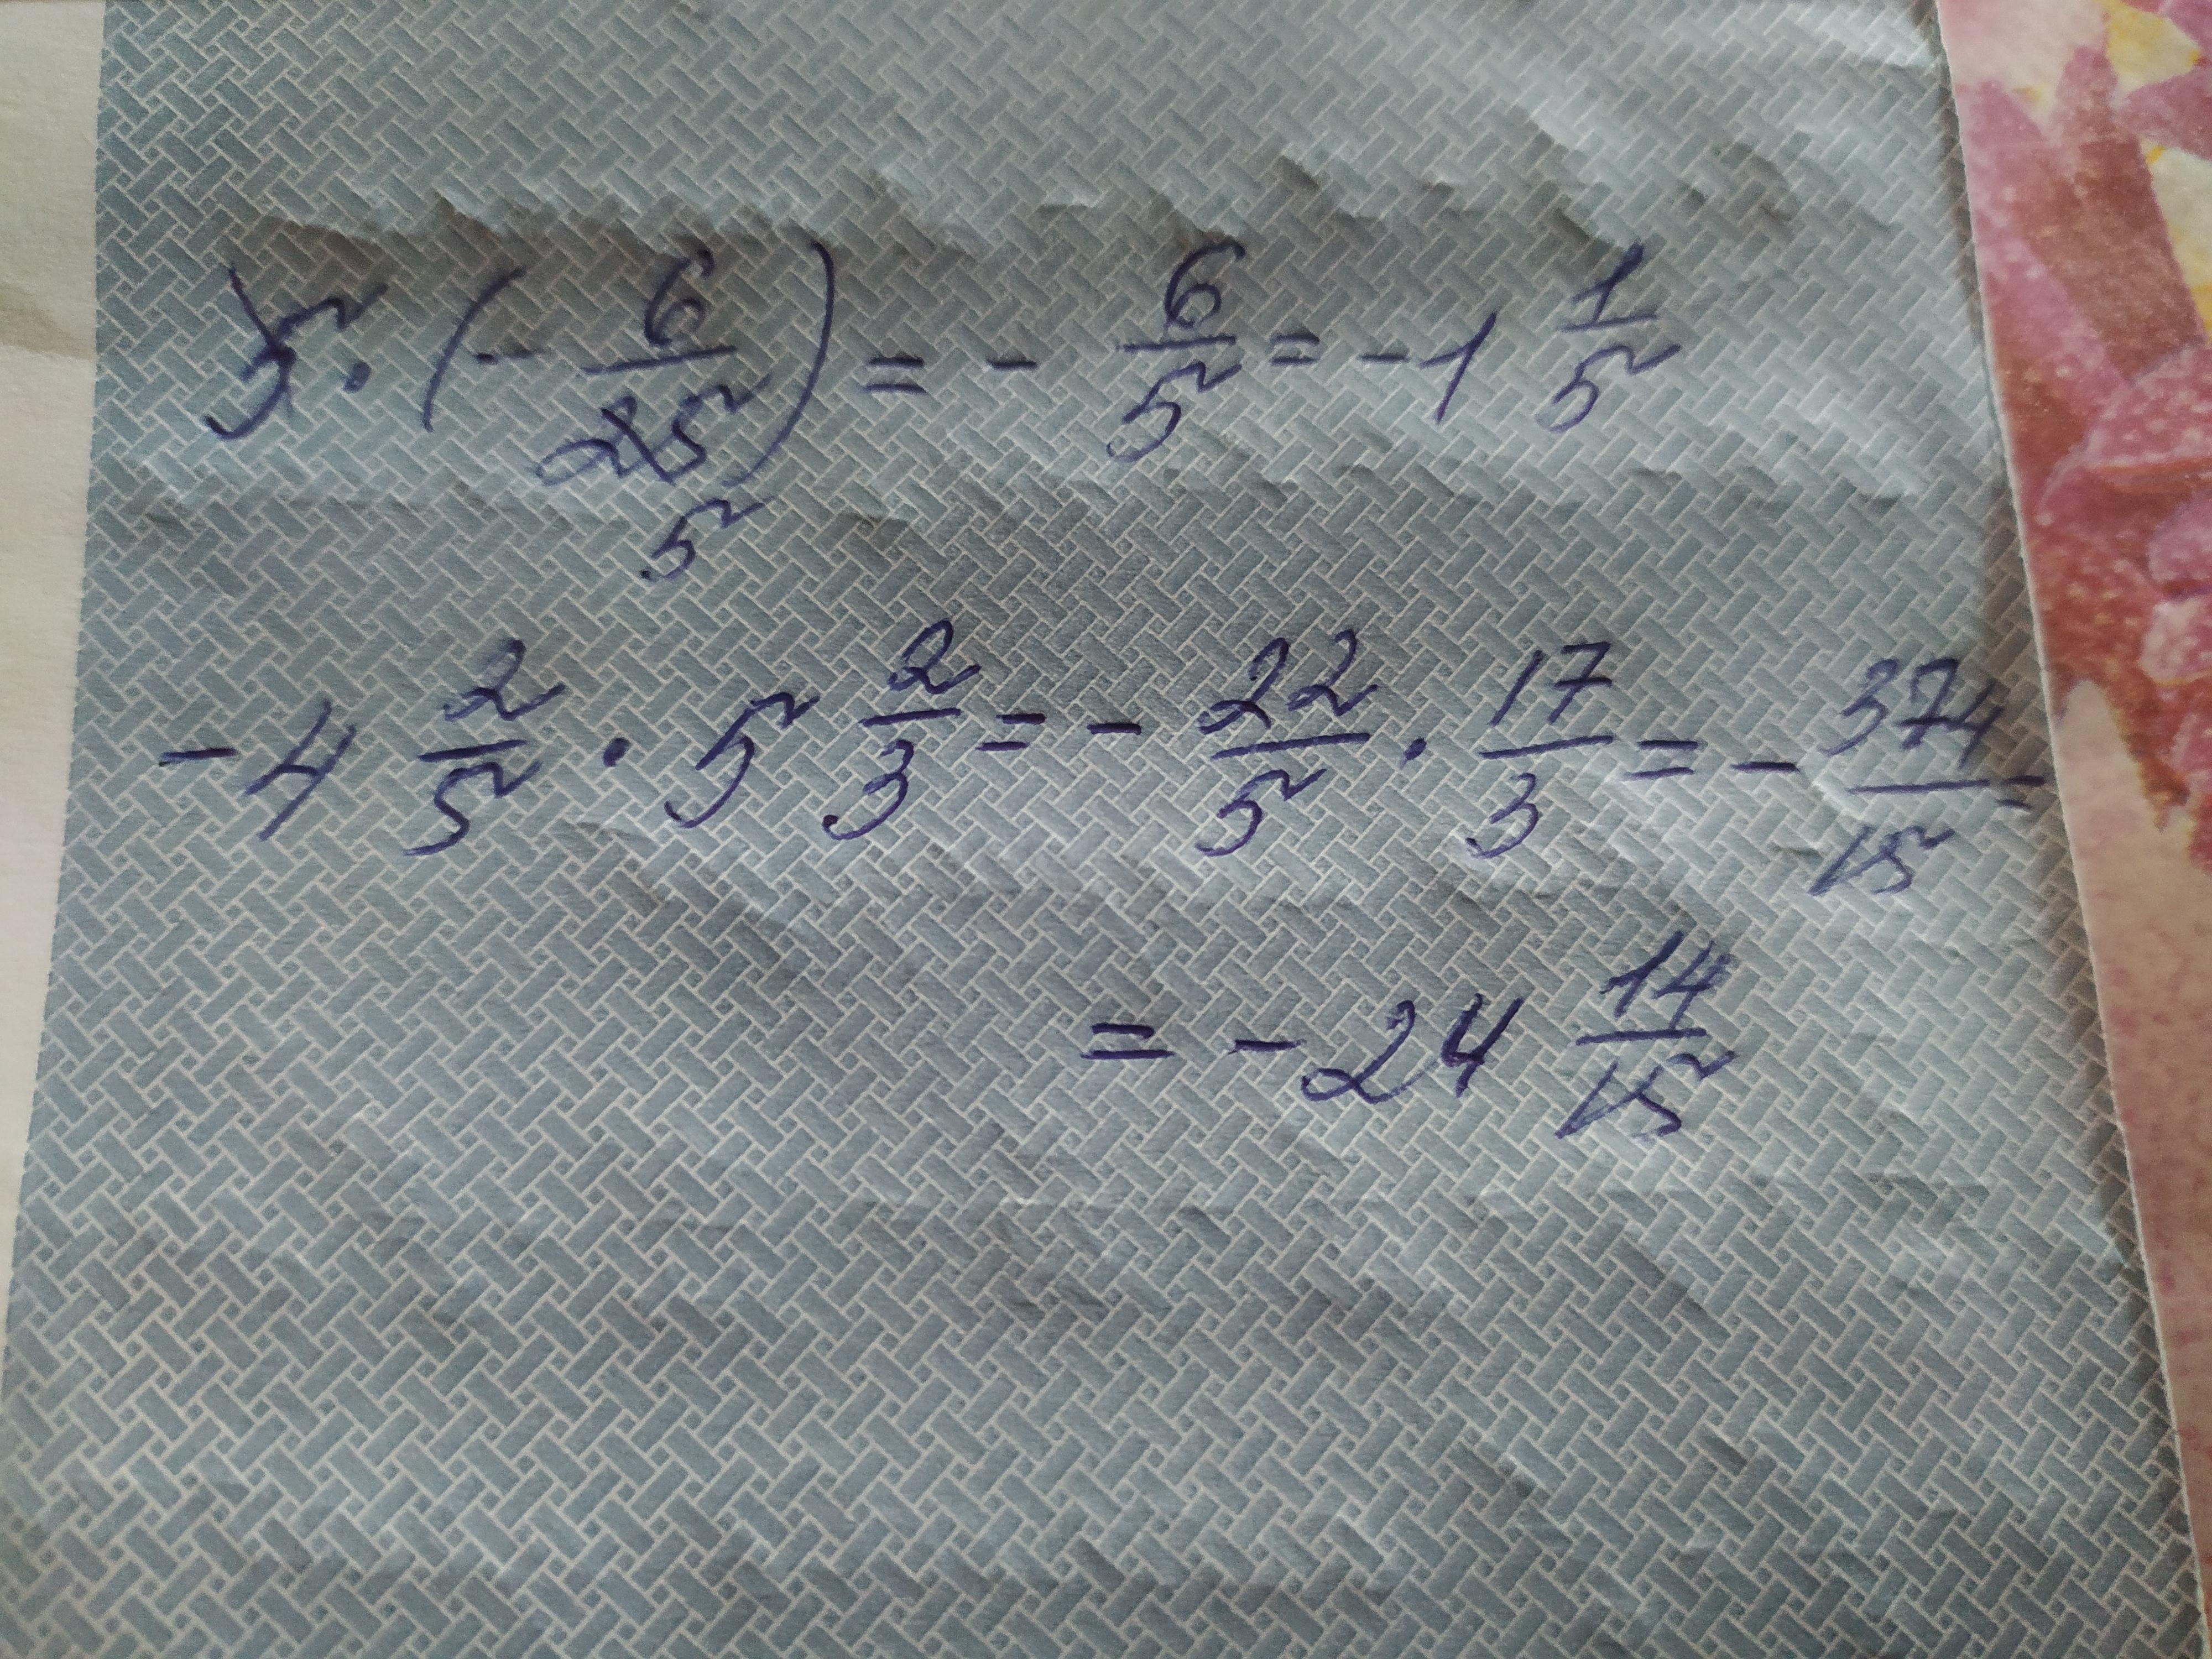 5 · (- 6/25) = - 6/5 = -1 1/5
5
-4 2/5 · 5 2/3 = - 22/5 · 17/3 = - 374/15 =
= -24 14/15